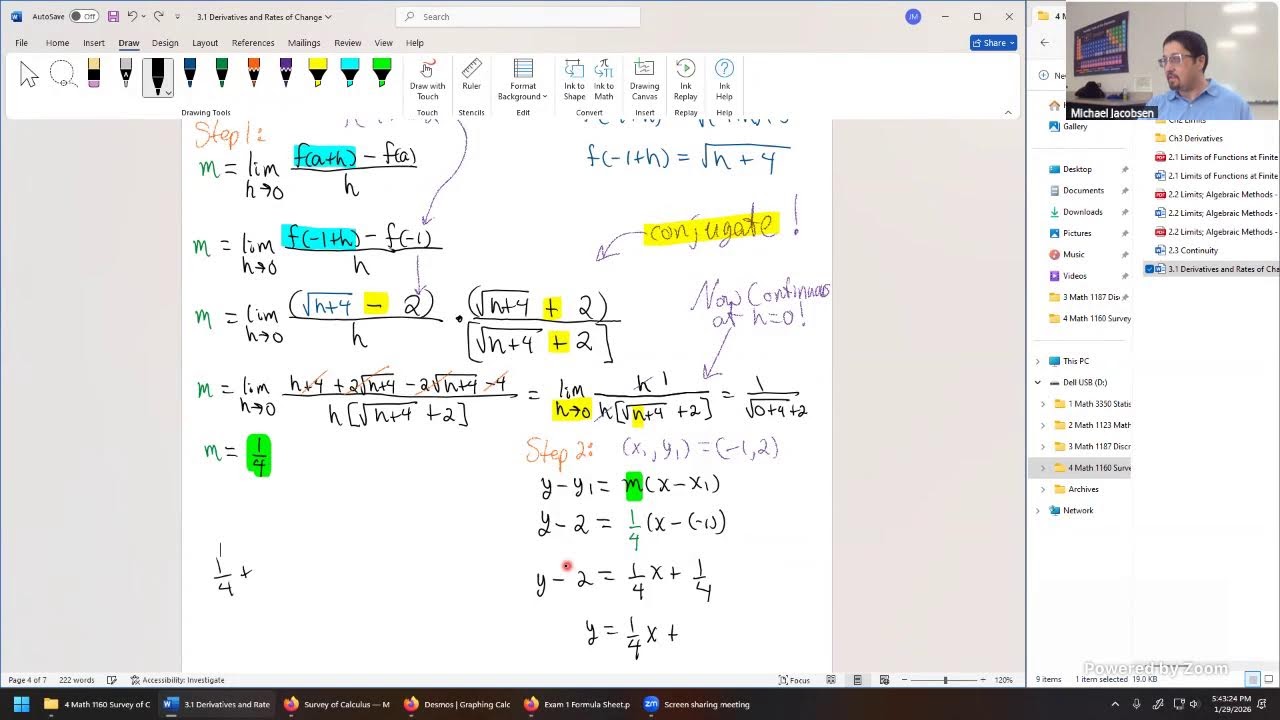 AutoSave Off 3.1 Derivatives and Rates of Change Search JM
File Home Insert Draw Design Layout References Mailings Review View Help Share
Draw with Touch Ruler Format Background Ink to Shape Ink to Math Drawing Canvas Ink Replay Ink Help
Drawing Tools Touch Stencils Edit Convert Insert Replay Help
Michael Jacobsen
Step 1:
m = lim h→0 (f(a+h) - f(a))/h
f(-1+h) = √(h+4)
m = lim h→0 (f(-1+h) - f(-1))/h
conjugate!
m = lim h→0 (√(h+4) - 2)/h · (√(h+4) + 2)/[√(h+4) + 2]
Now Continuous at h=0!
m = lim h→0 (h+4 + 2√(h+4) - 2√(h+4) - 4)/(h[√(h+4) + 2]) = lim h→0 h 1/(h[√(h+4) + 2]) = 1/(√(0+4)+2)
m = 1/4
Step 2: (x₁, y₁) = (-1, 2)
y - y₁ = m(x - x₁)
y - 2 = 1/4 (x - (-1))
1/4 +
y - 2 = 1/4 x + 1/4
y = 1/4 x +
4 M
New
Gallery
Desktop
Documents
Downloads
Pictures
Music
Videos
3 Math 1187 Dis
4 Math 1160 Survey
This PC
Dell USB (D:)
1 Math 3350 Statis
2 Math 1123 Math
3 Math 1187 Discr
4 Math 1160 Surve
Archives
Network
Ch2 Limits
Ch3 Derivatives
2.1 Limits of Functions at Finite
2.1 Limits of Functions at Finite
2.2 Limits; Algebraic Methods -
2.2 Limits; Algebraic Methods -
2.2 Limits; Algebraic Methods -
2.3 Continuity
3.1 Derivatives and Rates of Cha
Powered by Zoom
Page 4 of 7 222 words Accessibility: Investigate Focus 120%
9 items 1 item selected 19.0 KB
4 Math 1160 Survey of C 3.1 Derivatives and Rate Survey of Calculus — M Desmos | Graphing Calc Exam 1 Formula Sheet.p Screen sharing meeting
5:43:24 PM
1/29/2026